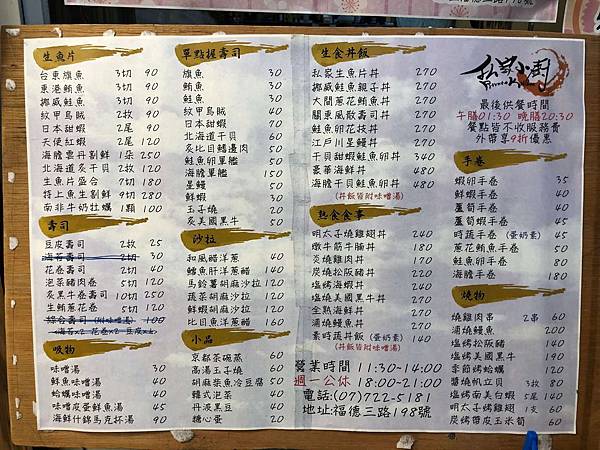 生魚片
台東旗魚 3切 90
東港鮪魚 3切 90
挪威鮭魚 3切 90
紋甲烏賊 2枚 90
日本甜蝦 2尾 90
天使紅蝦 2尾 120
海膽雲丹刺鮮 1朵 250
北海道生干貝 2枚 120
生魚片盛合 7切 180
特上魚生刺鮮 9切 280
南非牛奶牡蠣 1顆 100
壽司
豆皮壽司 2枚 25
2切 30
花卷壽司 2切 40
泡菜豬肉卷 5切 120
炙黑牛卷壽司 10切 250
生鮪蔥花卷 5切 120
綜合壽司(附味噌湯) 100
吸物
味噌湯 30
鮮魚味噌湯 40
蛤蠣味噌湯 40
味噌皮蛋鮮魚湯 45
海鮮什錦馬克杯湯 90
單點握壽司
旗魚 30
鮪魚 30
鮭魚 30
紋甲烏賊 40
日本甜蝦 70
北海道干貝 60
炙比目鰭邊肉 50
鮭魚卵軍艦 50
海膽軍艦 150
星鰻 50
鮮蝦 30
玉子燒 20
炙美國黑牛 50
沙拉
和風醋洋蔥 40
鱈魚肝洋蔥 140
馬鈴薯胡麻沙拉 120
蔬菜胡麻沙拉 120
鮮蝦胡麻沙拉 120
比目魚洋蔥醋 160
小品
京都茶碗蒸 60
高湯玉子燒 60
胡麻柴魚冷豆腐 50
韓式泡菜 40
丹波黑豆 40
糖心蛋 20
生食丼飯
私家生魚片丼 270
挪威鮭魚親子丼 270
大間蔥花鮪魚丼 270
關東風散壽司丼 270
鮭魚卵花枝丼 270
江戶川星鰻丼 270
干貝甜蝦鮭魚卵丼 340
豪華海鮮丼 480
海膽干貝鮭魚卵丼 480
(丼飯皆附味噌湯)
熟食食事
明太子燒雞翅丼 240
燉牛筋牛腩丼 180
炎燒雞肉丼 170
炭燒松阪豬丼 220
塩烤海蝦丼 240
塩燒美國黑牛丼 320
全熟海鮮丼 240
浦燒鰻魚丼 290
素時蔬丼飯(蛋奶素) 140
(丼飯皆附味噌湯)
營業時間 11:30-14:00
週一公休 18:00-21:00
電話:(07)722-5181
地址:福德三路198號
私房小廚
最後供餐時間
午膳01:30 晚膳20:30
餐點皆不收服務費
外帶享9折優惠
手卷
蝦卵手卷 35
鮮蝦手卷 40
蘆筍手卷 40
蘆筍蝦手卷 45
時蔬手卷(蛋奶素) 45
蔥花鮪魚手卷 50
鮭魚卵手卷 60
海膽手卷 180
燒物
燒雞肉串 2串 60
浦燒鰻魚 200
塩烤松阪豬 120
塩烤美國黑牛 190
季節烤蛤蠣 120
醬燒帆立貝 3枚 80
塩烤南美白蝦 5尾 140
明太子烤雞翅 1支 60
炭烤帶皮玉米筍 60